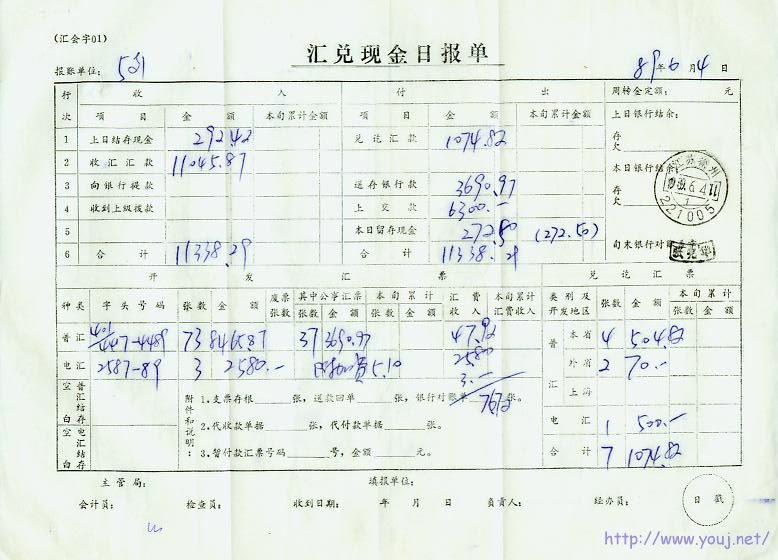 (汇会字01)
汇兑现金日报单
报账单位: 531 89年6月4日
行次 收入 付出 周转金定额: 元
项目 金额 本旬累计金额 项目 金额 本旬累计金额 上日银行结余:
1 上日结存现金 292.42 兑讫汇款 1074.82 存欠
2 收汇汇款 11045.87 本日银行结余
3 向银行提款 送存银行款 3690.97 存欠
4 收到上级拨款 上交款 6300.—
5 本日留存现金 272.50 (272.50)
6 合计 11338.29 合计 11338.29 旬末银行对账
江苏徐州
1989.6.4.11
1
221005
开发汇票 兑讫汇票
种类 字头号码 张数 金额 废票张数 其中公事汇票 张数 金额 本旬累计 张数 金额 汇费收入 本旬累计汇费收入 类别及开发地区 张数 金额 本旬累计 张数 金额
普汇 401/4417-4489 73 8465.87 37 3690.97 47.92 普汇 本省 4 504.82
电汇 2587-89 3 2580.— 5.10 25.80 外省 2 70.—
3.— 上海
76.72
空白 普汇结存
空白 电汇结存
附件和说明:
1.支票存根 张, 送款回单 张, 银行对账单 张。
2.代收款单据 张, 代付款单据 张。
3.暂付款汇票号码 号, 金额 元。
电汇 1 500.—
合计 7 1074.82
主管局: 填报单位:
会计员: 检查员: 收到日期: 年 月 日 负责人: 经办员: 日戳
http://www.youj.net/